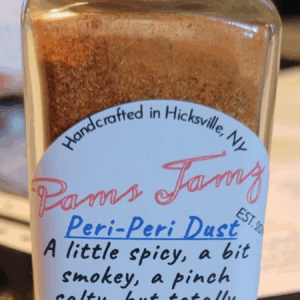 Handcrafted in Hicksville, NY
Pams Jamz
EST. 20
Peri-Peri Dust
A little spicy, a bit
smokey, a pinch
salty, but totally